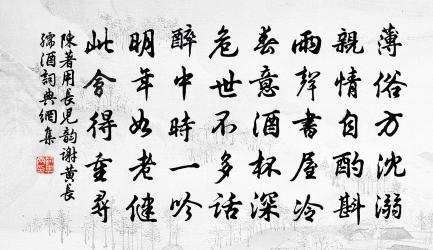 薄俗方沈溺
親情自酌斟
雨聲書屋冷
春意酒杯深
危世不多話
醉中時一吟
明年如老健
此會得重尋
陳著用長兒韵謝黃長
孺酒詞典網集